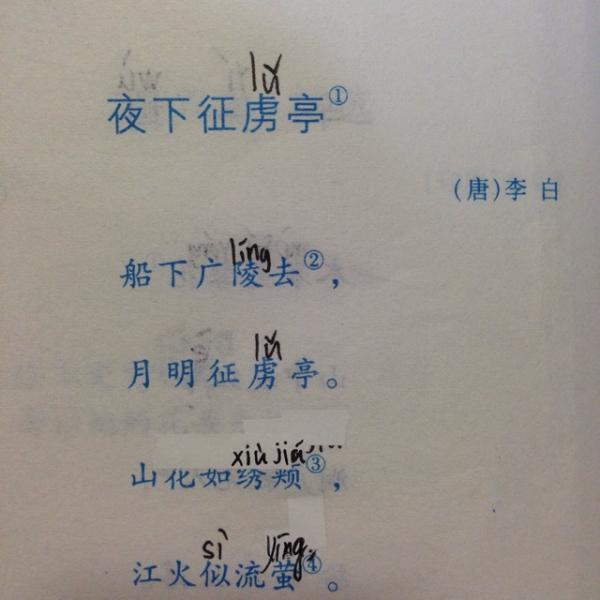 lǔ
夜下征虏亭①
(唐)李白
líng
船下广陵去②，
lǔ
月明征虏亭。
xiù jiá
山花如绣颊③，
sì yíng
江火似流萤④。